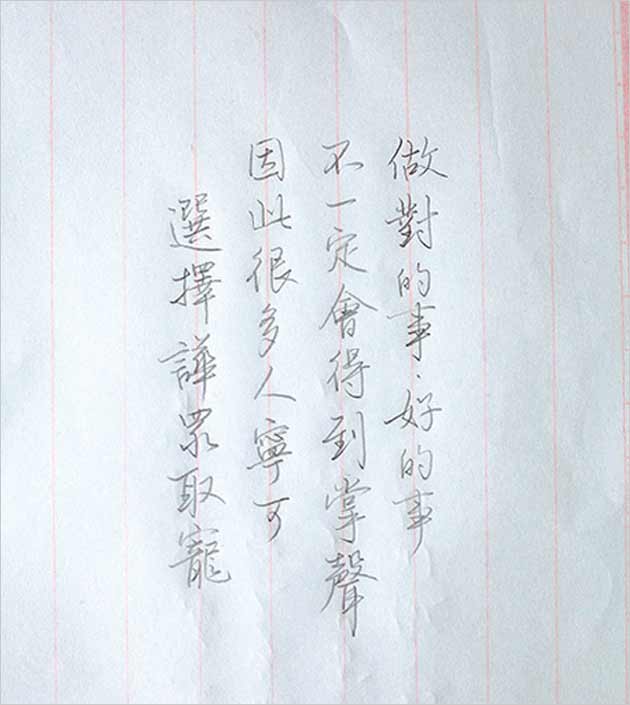 做對的事.好的事
不一定會得到掌聲
因此很多人寧可
選擇譁眾取寵